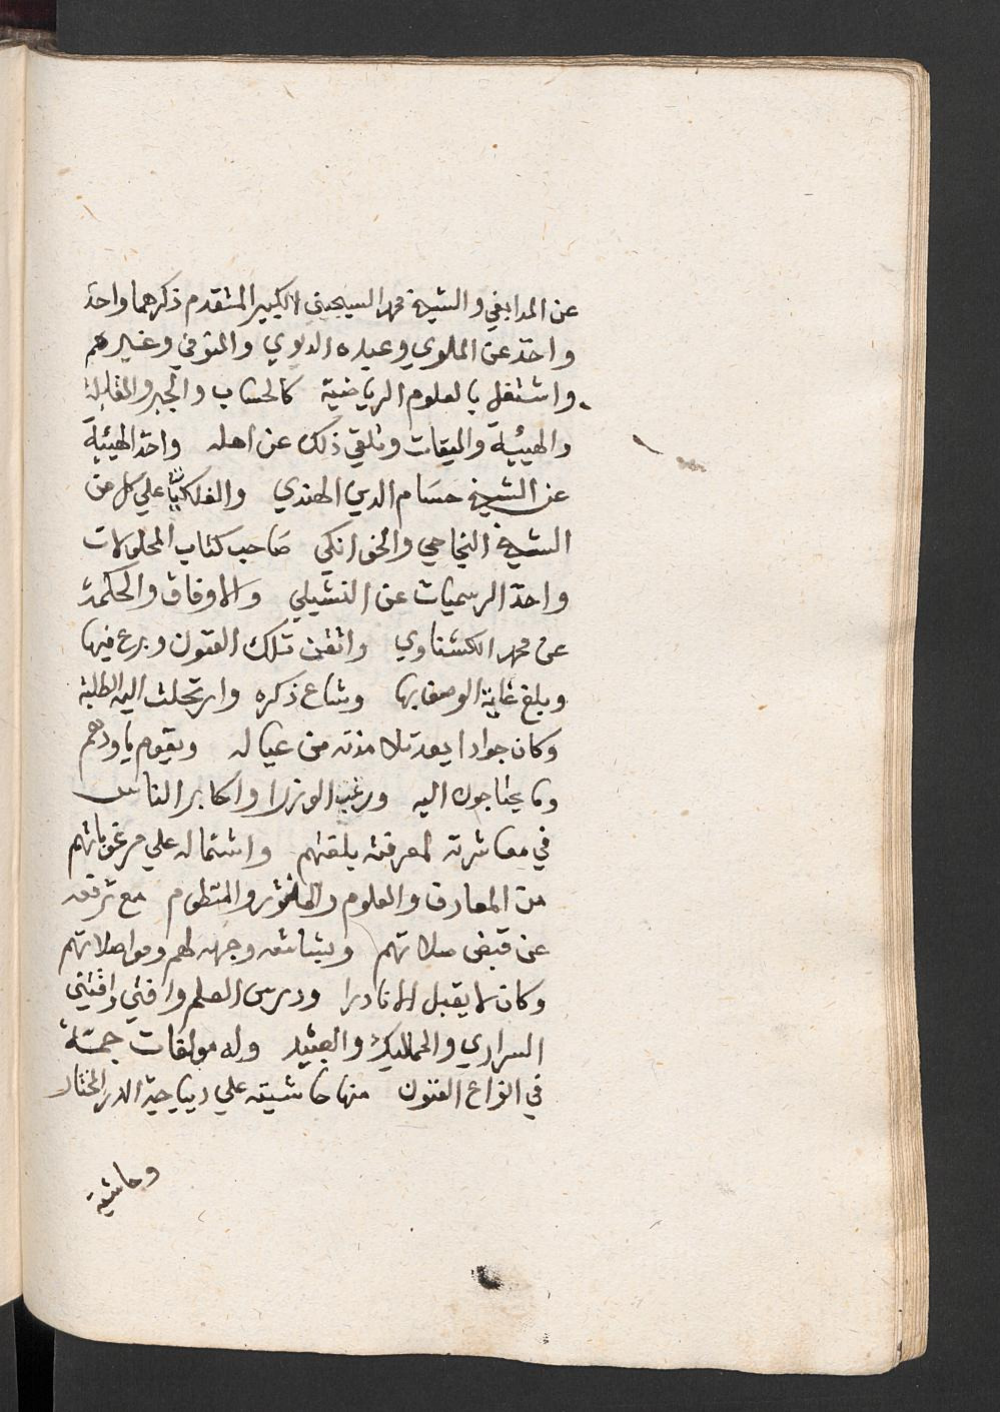 عن المدابغي والشيخ محمد السجيني الكبير المتقدم ذكرهما واخذ
واخذ عن الملوي وعبده الديوي والمتوفي وغيرهم
واشتغل بالعلوم الرياضية كالحساب والجبر والمقابلة
والهيئية والميقات وتلقي ذلك عن اهله واخذ الهيئية
عن الشيخ حسام الدين الهندي والفلكيات علي كل من
الشيخ النجاحي والخوانكي صاحب كتاب المحلولات
واخذ الرسميات عن النشيلي والاوفاق والحكمة
عن محمد الكشناوي واتقن تلك الفنون وبرع فيها
وبلغ غاية الوصف بها وشاع ذكره وارتحلت اليه الطلبة
وكان جوادا يعد تلامذته من عياله ويقوم باودهم
وما يحتاجون اليه ورغب الوزرا واكابر الناس
في معاشرته لمعرفته بلغتهم واشتماله علي مرغوباتهم
من المعارف والعلوم والمنثور والمنظوم مع ترفعه
عن قبض صلاتهم وبشاشة وجهه لهم ومواصلاتهم
وكان لا يقبل الا نادرا ودرس العلم وافتي واقتني
السراري والمماليك والعبيد وله مولفات جمة
في انواع الفنون منها حاشية علي ديباجية الدر المختار
وحاشية